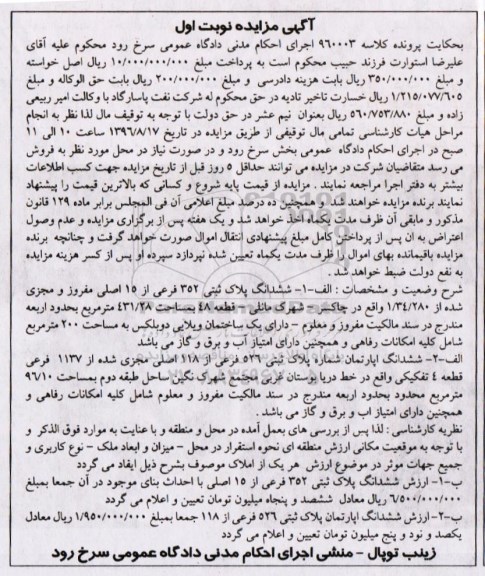 آگهی مزایده نوبت اول
بحکایت پرونده کلاسه ۹۶۰۰۰۳ اجرای احکام مدنی دادگاه عمومی سرخ رود محکوم علیه آقای
علیرضا استوارت فرزند حبیب محکوم است به پرداخت مبلغ ۱۰/۰۰۰/۰۰۰/۰۰۰ ریال اصل خواسته
و مبلغ ۳۵۰/۰۰۰/۰۰۰ ریال بابت هزینه دادرسی و مبلغ ۲۰۰/۰۰۰/۰۰۰ ریال بابت حق الوکاله و مبلغ
۱/۲۱۵/۰۷۷/۶۰۵ ریال خسارت تاخیر تادیه در حق محکوم له شرکت نفت پاسارگاد با وکالت امیر ربیعی
زاده و مبلغ ۵۶۰/۷۵۳/۸۸۰ ریال بعنوان نیم عشر در حق دولت با توجه به توقیف مال لذا نظر به انجام
مراحل هیات کارشناسی تمامی مال توقیفی از طریق مزایده در تاریخ ۱۳۹۶/۸/۱۷ ساعت ۱۰ الی ۱۱
صبح در اجرای احکام دادگاه عمومی بخش سرخ رود و در صورت نیاز در محل مورد نظر به فروش
می رسد متقاضیان شرکت در مزایده می توانند حداقل ۵ روز قبل از تاریخ مزایده جهت کسب اطلاعات
بیشتر به دفتر اجرا مراجعه نمایند . مزایده از قیمت پایه شروع و کسانی که بالاترین قیمت را پیشنهاد
نمایند برنده مزایده خواهند شد . همچنین ده درصد مبلغ اعلامی آن فی المجلس برابر ماده ۱۲۹ قانون
مذکور و مابقی آن ظرف مدت یکماه اخذ خواهد شد و یک هفته پس از برگزاری مزایده و عدم وصول
اعتراض به ان پس از پرداختن کامل مبلغ پیشنهادی انتقال اموال صورت خواهد گرفت و چنانچه برنده
مزایده باقیمانده بهای اموال را ظرف مدت یکماه تعیین شده نپردازد سپرده او پس از کسر هزینه مزایده
به نفع دولت ضبط خواهد شد .
شرح وضعیت و مشخصات : الف-۱- ششدانگ پلاک ثبتی ۳۵۲ فرعی از ۱۵ اصلی مفروز و مجزی
شده از ۱/۳۴/۲۸۰ واقع در چاکسر – شهرک مائلی – قطعه ۴۸ بمساحت ۴۳۱/۲۸ مترمربع بحدود اربعه
مندرج در سند مالکیت مفروز و معلوم – دارای یک ساختمان ویلایی دوبلکس به مساحت ۲۰۰ مترمربع
شامل کلیه امکانات رفاهی و همچنین دارای امتیاز آب و برق و گاز می باشد
الف-۲- ششدانگ اپارتمان شماره پلاک ثبتی ۵۲۶ فرعی از ۱۱۸ اصلی مجزی شده از ۱۱۳۷ فرعی
قطعه ٤ تفکیکی واقع در خط دریا بوستان غربی مجتمع شهرک نگین ساحل طبقه دوم بمساحت ۹۶/۱۰
مترمربع محدود بحدود اربعه مندرج در سند مالکیت مفروز و معلوم شامل کلیه امکانات رفاهی و
همچنین دارای امتیاز اب و برق و گاز می باشد .
نظریه کارشناسی : لذا پس از بررسی های بعمل آمده در محل و منطقه و با عنایت به موارد فوق الذکر و
با توجه به موقعیت مکانی ارزش منطقه ای نحوه استقرار در محل – میزان و ابعاد ملک – نوع کاربری و
جمیع جهات موثر در موضوع ارزش هر یک از املاک موصوف بشرح ذیل ایفاد می گردد
ب-۱- ارزش ششدانگ پلاک ثبتی ۳۵۲ فرعی از ۱۵ اصلی با احداث بنای موجود در آن جمعا بمبلغ
۶/۵۰۰/۰۰۰/۰۰۰ ریال معادل ششصد و پنجاه میلیون تومان تعیین و اعلام می گردد
ب-۲- ارزش ششدانگ اپارتمان پلاک ثبتی ۵۲۶ فرعی از ۱۱۸ جمعا بمبلغ ۱/۹۵۰/۰۰۰/۰۰۰ ریال معادل
یکصد و نود و پنج میلیون تومان تعیین و اعلام می گردد
زینب توپال – منشی اجرای احکام مدنی دادگاه عمومی سرخ رود